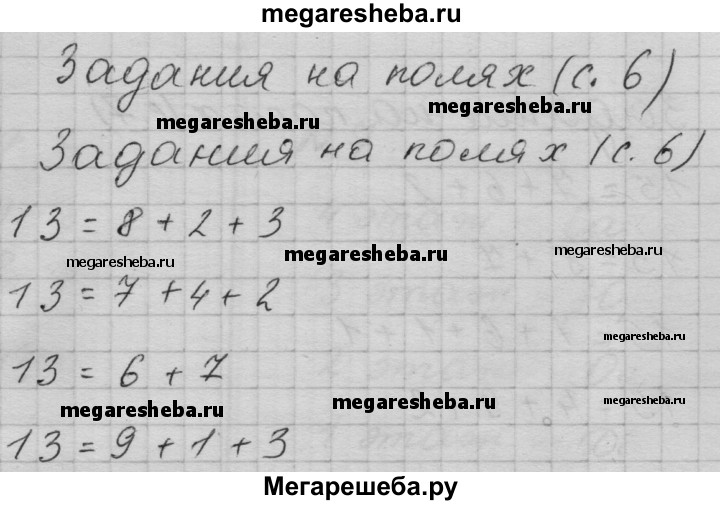 megaresheba.ru
Задания на полях (с. 6)
megaresheba.ru
megaresheba.ru
Задания на полях (с. 6)
13 = 8 + 2 + 3
megaresheba.ru
megaresheba.ru
megaresheba.ru
13 = 7 + 4 + 2
megaresheba.ru
13 = 6 + 7
megaresheba.ru
megaresheba.ru
13 = 9 + 1 + 3
Мегарешеба.ру